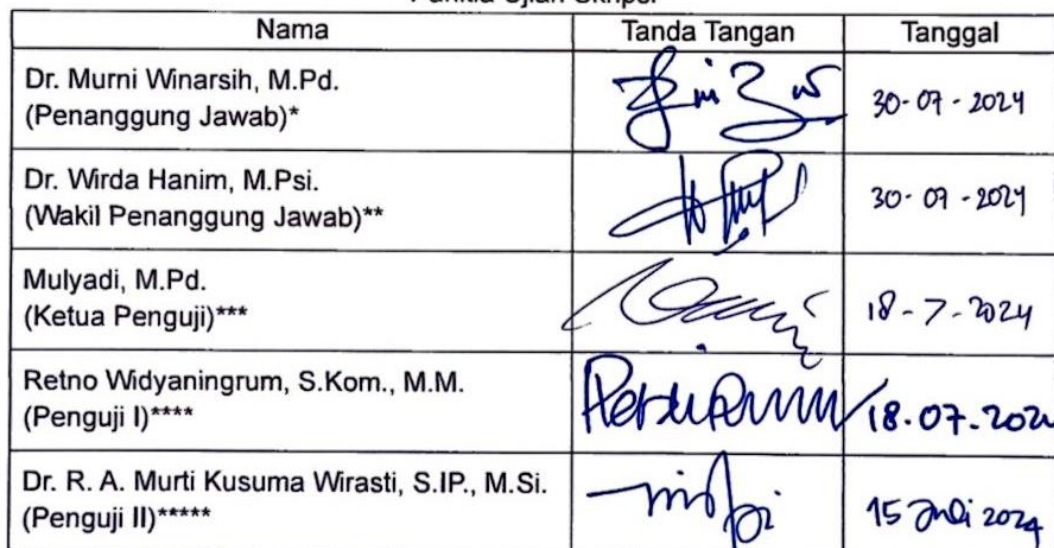 Panitia Ujian Skripsi
Nama Tanda Tangan Tanggal
Dr. Murni Winarsih, M.Pd.
(Penanggung Jawab)*
30-07-2024
Dr. Wirda Hanim, M.Psi.
(Wakil Penanggung Jawab)**
30-07-2024
Mulyadi, M.Pd.
(Ketua Penguji)***
18-7-2024
Retno Widyaningrum, S.Kom., M.M.
(Penguji I)****
18.07.202
Dr. R. A. Murti Kusuma Wirasti, S.IP., M.Si.
(Penguji II)*****
15 Juli 2024